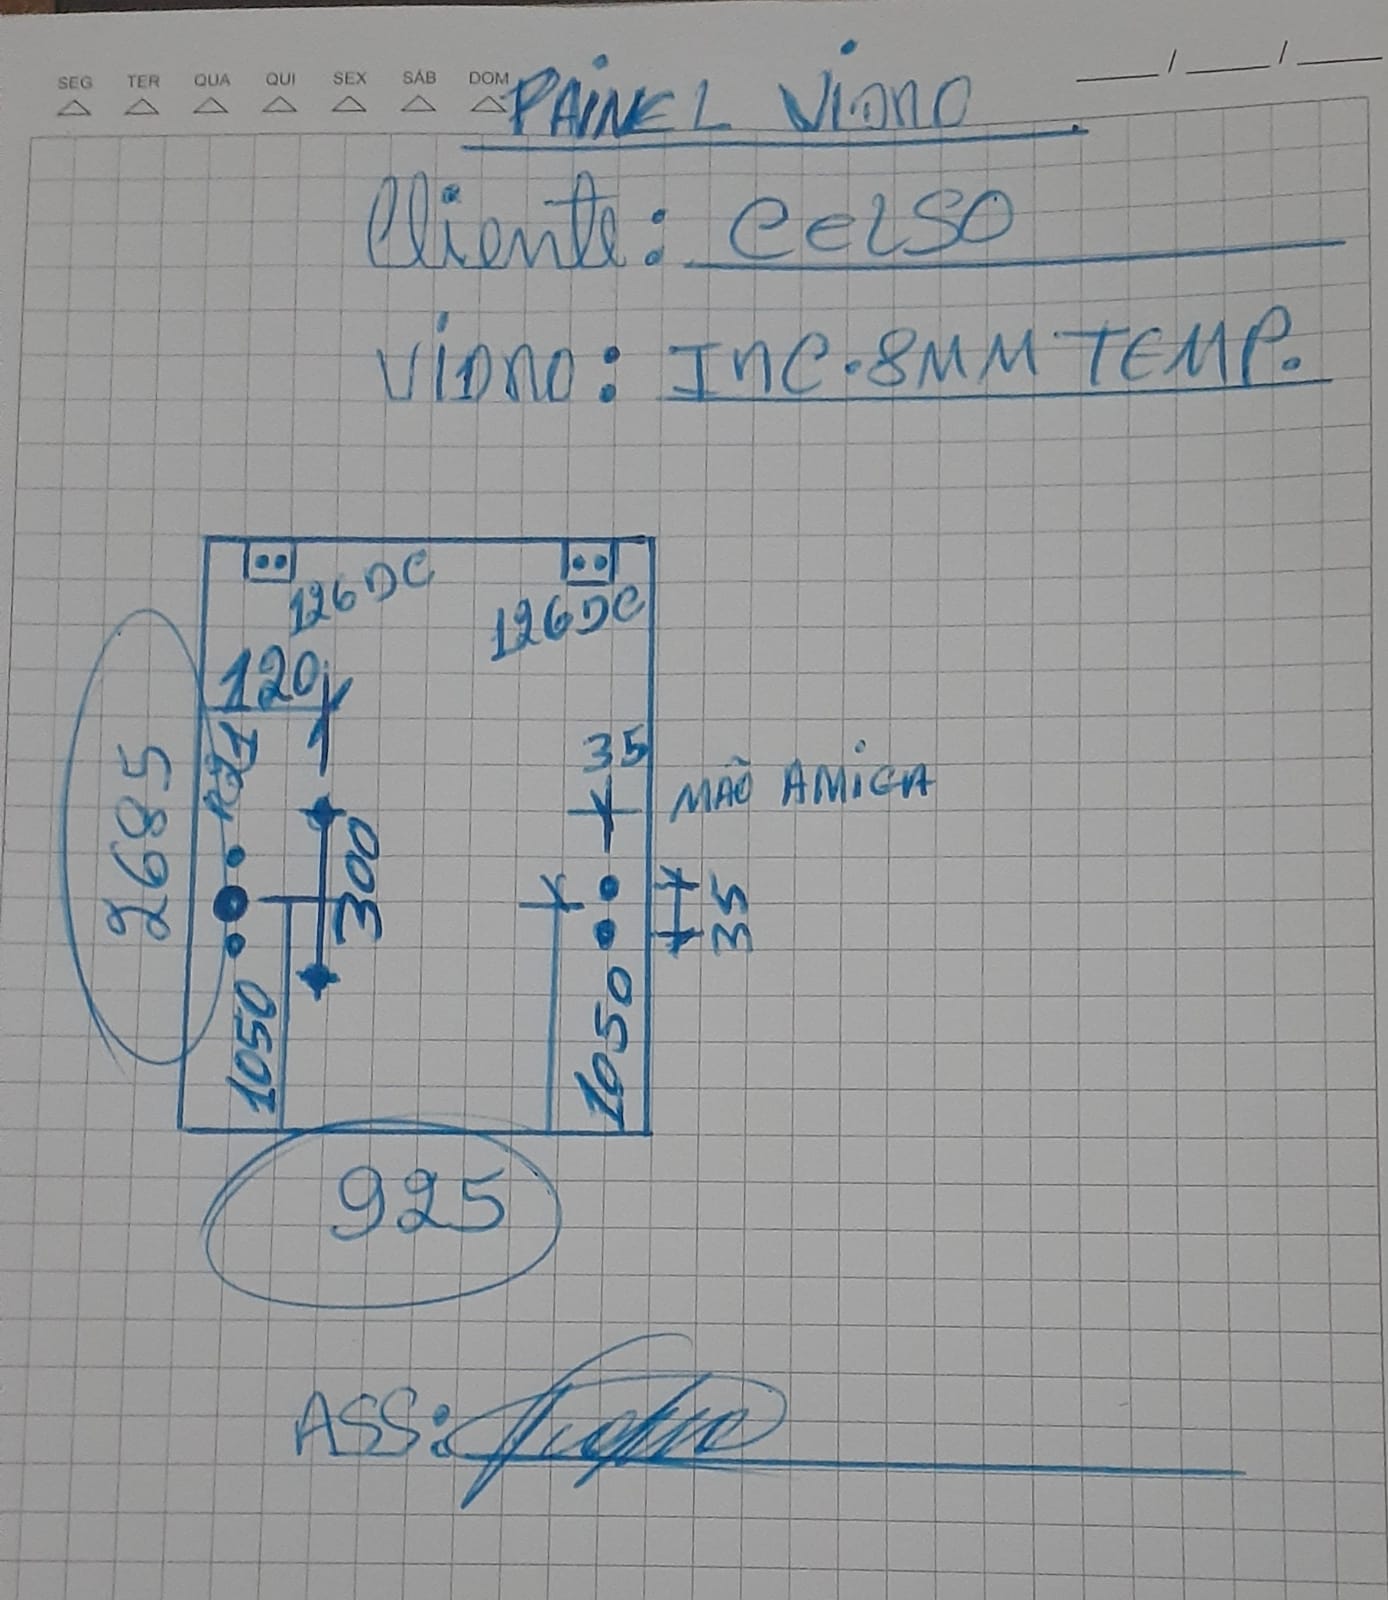 SEG TER QUA QUI SEX SÁB DOM
__/__/__
PAINEL VIDRO
Cliente: CELSO
VIDRO: INC. 8MM TEMP.
126 DC
126 DC
120
R21
35
MÃO AMIGA
2685
300
35
1050
1050
925
ASS: